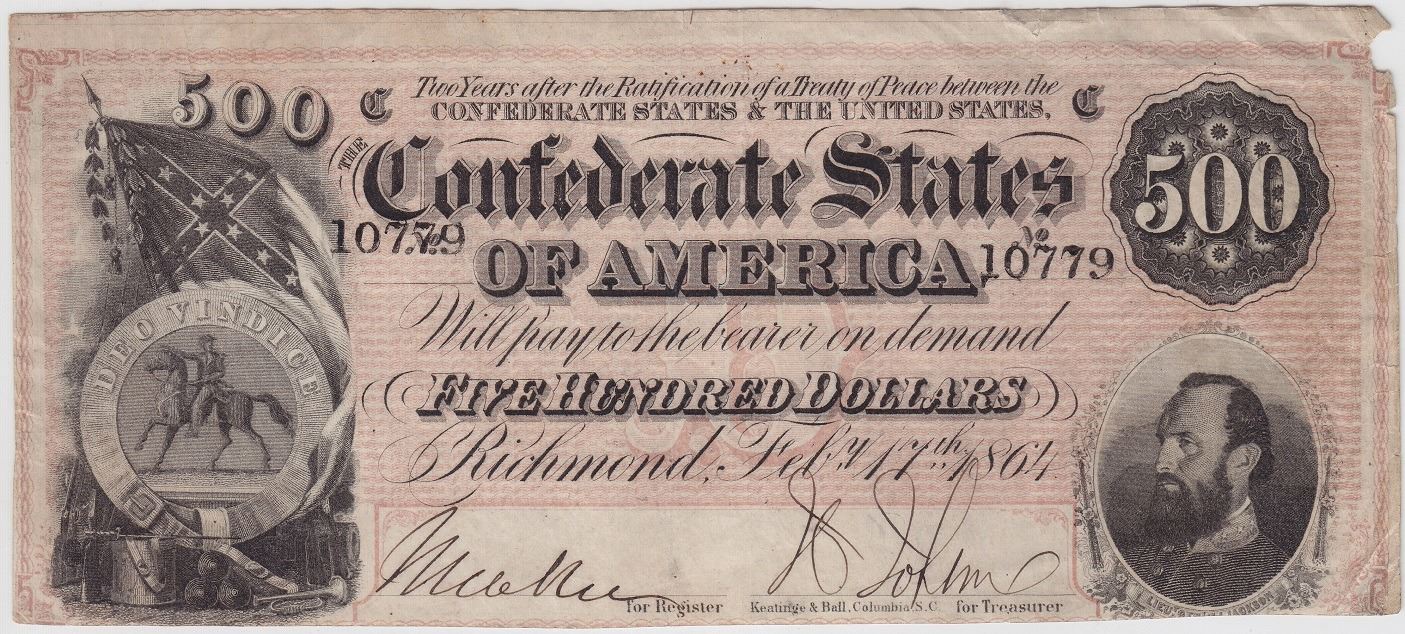 500
C
Two Years after the Ratification of a Treaty of Peace between the
C
CONFEDERATE STATES & THE UNITED STATES,
THE
Confederate States
500
No
10779
OF AMERICA
No
10779
Will pay to the bearer on demand
FIVE HUNDRED DOLLARS
Richmond, Feby. 17th. 1864.
DEO VINDICE
for Register
Keatinge & Ball, Columbia, S.C.
for Treasurer
LIEUT. GEN. T.J. JACKSON